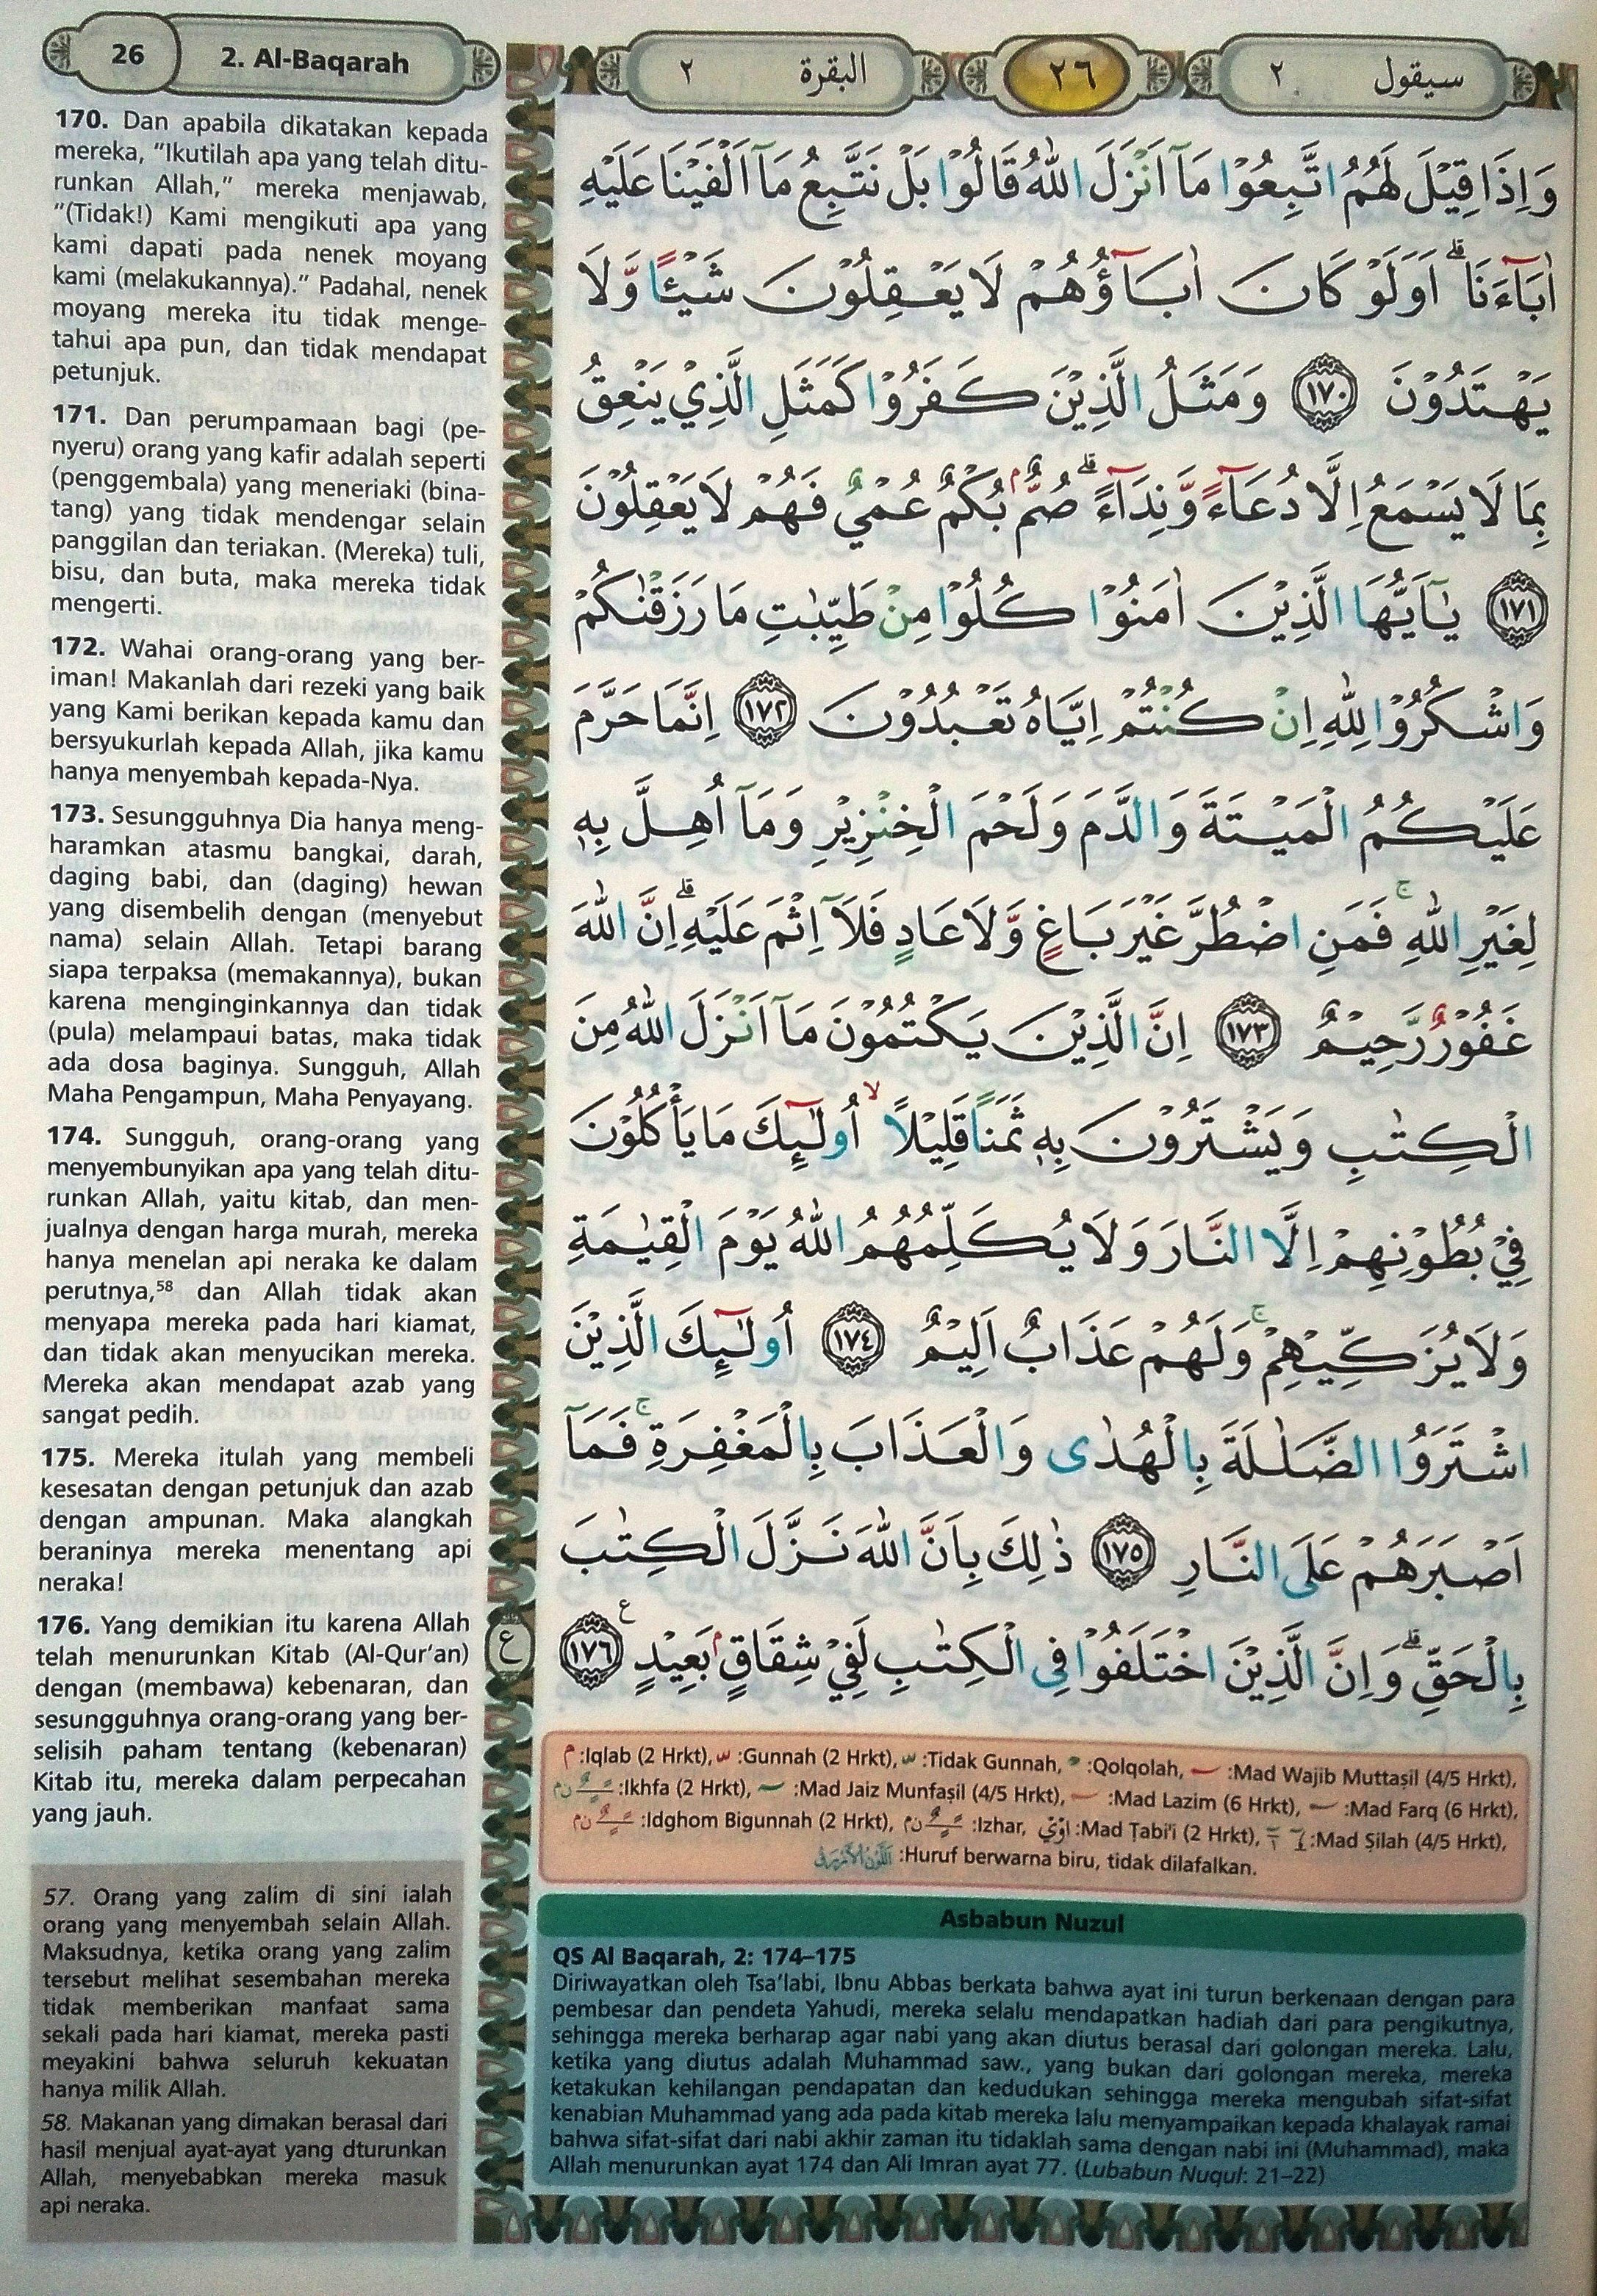 26
2. Al-Baqarah
170. Dan apabila dikatakan kepada
mereka, "Ikutilah apa yang telah ditu-
runkan Allah," mereka menjawab,
"(Tidak!) Kami mengikuti apa yang
kami dapati pada nenek moyang
kami (melakukannya)." Padahal, nenek
moyang mereka itu tidak menge-
tahui apa pun, dan tidak mendapat
petunjuk.
171. Dan perumpamaan bagi (pe-
nyeru) orang yang kafir adalah seperti
(penggembala) yang meneriaki (bina-
tang) yang tidak mendengar selain
panggilan dan teriakan. (Mereka) tuli,
bisu, dan buta, maka mereka tidak
mengerti.
172. Wahai orang-orang yang ber-
iman! Makanlah dari rezeki yang baik
yang Kami berikan kepada kamu dan
bersyukurlah kepada Allah, jika kamu
hanya menyembah kepada-Nya.
173. Sesungguhnya Dia hanya meng-
haramkan atasmu bangkai, darah,
daging babi, dan (daging) hewan
yang disembelih dengan (menyebut
nama) selain Allah. Tetapi barang
siapa terpaksa (memakannya), bukan
karena menginginkannya dan tidak
(pula) melampaui batas, maka tidak
ada dosa baginya. Sungguh, Allah
Maha Pengampun, Maha Penyayang.
174. Sungguh, orang-orang yang
menyembunyikan apa yang telah ditu-
runkan Allah, yaitu kitab, dan men-
jualnya dengan harga murah, mereka
hanya menelan api neraka ke dalam
perutnya,⁵⁸ dan Allah tidak akan
menyapa mereka pada hari kiamat,
dan tidak akan menyucikan mereka.
Mereka akan mendapat azab yang
sangat pedih.
175. Mereka itulah yang membeli
kesesatan dengan petunjuk dan azab
dengan ampunan. Maka alangkah
beraninya mereka menentang api
neraka!
176. Yang demikian itu karena Allah
telah menurunkan Kitab (Al-Qur'an)
dengan (membawa) kebenaran, dan
sesungguhnya orang-orang yang ber-
selisih paham tentang (kebenaran)
Kitab itu, mereka dalam perpecahan
yang jauh.
57. Orang yang zalim di sini ialah
orang yang menyembah selain Allah.
Maksudnya, ketika orang yang zalim
tersebut melihat sesembahan mereka
tidak memberikan manfaat sama
sekali pada hari kiamat, mereka pasti
meyakini bahwa seluruh kekuatan
hanya milik Allah.
58. Makanan yang dimakan berasal dari
hasil menjual ayat-ayat yang dturunkan
Allah, menyebabkan mereka masuk
api neraka.
سيقول ٢
٢٦
البقرة ٢
وَاِذَا قِيْلَ لَهُمُ اتَّبِعُوْا مَآ اَنْزَلَ اللّٰهُ قَالُوْا بَلْ نَتَّبِعُ مَآ اَلْفَيْنَا عَلَيْهِ
اٰبَاۤءَنَا ۗ اَوَلَوْ كَانَ اٰبَاۤؤُهُمْ لَا يَعْقِلُوْنَ شَيْـًٔا وَّلَا
يَهْتَدُوْنَ ۝١٧٠ وَمَثَلُ الَّذِيْنَ كَفَرُوْا كَمَثَلِ الَّذِيْ يَنْعِقُ
بِمَا لَا يَسْمَعُ اِلَّا دُعَاۤءً وَّنِدَاۤءً ۗ صُمٌّ ۢ بُكْمٌ عُمْيٌ فَهُمْ لَا يَعْقِلُوْنَ
۝١٧١ يٰٓاَيُّهَا الَّذِيْنَ اٰمَنُوْا كُلُوْا مِنْ طَيِّبٰتِ مَا رَزَقْنٰكُمْ
وَاشْكُرُوْا لِلّٰهِ اِنْ كُنْتُمْ اِيَّاهُ تَعْبُدُوْنَ ۝١٧٢ اِنَّمَا حَرَّمَ
عَلَيْكُمُ الْمَيْتَةَ وَالدَّمَ وَلَحْمَ الْخِنْزِيْرِ وَمَآ اُهِلَّ بِهٖ
لِغَيْرِ اللّٰهِ ۚ فَمَنِ اضْطُرَّ غَيْرَ بَاغٍ وَّلَا عَادٍ فَلَآ اِثْمَ عَلَيْهِ ۗ اِنَّ اللّٰهَ
غَفُوْرٌ رَّحِيْمٌ ۝١٧٣ اِنَّ الَّذِيْنَ يَكْتُمُوْنَ مَآ اَنْزَلَ اللّٰهُ مِنَ
الْكِتٰبِ وَيَشْتَرُوْنَ بِهٖ ثَمَنًا قَلِيْلًا ۙ اُولٰۤىِٕكَ مَا يَأْكُلُوْنَ
فِيْ بُطُوْنِهِمْ اِلَّا النَّارَ وَلَا يُكَلِّمُهُمُ اللّٰهُ يَوْمَ الْقِيٰمَةِ
وَلَا يُزَكِّيْهِمْ ۚ وَلَهُمْ عَذَابٌ اَلِيْمٌ ۝١٧٤ اُولٰۤىِٕكَ الَّذِيْنَ
اشْتَرَوُا الضَّلٰلَةَ بِالْهُدٰى وَالْعَذَابَ بِالْمَغْفِرَةِ ۚ فَمَآ
اَصْبَرَهُمْ عَلَى النَّارِ ۝١٧٥ ذٰلِكَ بِاَنَّ اللّٰهَ نَزَّلَ الْكِتٰبَ
بِالْحَقِّ ۗ وَاِنَّ الَّذِيْنَ اخْتَلَفُوْا فِى الْكِتٰبِ لَفِيْ شِقَاقٍ ۢ بَعِيْدٍ ۝١٧٦ ع
ع
م :Iqlab (2 Hrkt), :Gunnah (2 Hrkt), :Tidak Gunnah, :Qolqolah, :Mad Wajib Muttaṣil (4/5 Hrkt),
:Ikhfa (2 Hrkt), :Mad Jaiz Munfaṣil (4/5 Hrkt), :Mad Lazim (6 Hrkt), :Mad Farq (6 Hrkt),
:Idghom Bigunnah (2 Hrkt), :Izhar, :Mad Ṭabi'i (2 Hrkt), :Mad Ṣilah (4/5 Hrkt),
:Huruf berwarna biru, tidak dilafalkan.
Asbabun Nuzul
QS Al Baqarah, 2: 174–175
Diriwayatkan oleh Tsa'labi, Ibnu Abbas berkata bahwa ayat ini turun berkenaan dengan para
pembesar dan pendeta Yahudi, mereka selalu mendapatkan hadiah dari para pengikutnya,
sehingga mereka berharap agar nabi yang akan diutus berasal dari golongan mereka. Lalu,
ketika yang diutus adalah Muhammad saw., yang bukan dari golongan mereka, mereka
ketakukan kehilangan pendapatan dan kedudukan sehingga mereka mengubah sifat-sifat
kenabian Muhammad yang ada pada kitab mereka lalu menyampaikan kepada khalayak ramai
bahwa sifat-sifat dari nabi akhir zaman itu tidaklah sama dengan nabi ini (Muhammad), maka
Allah menurunkan ayat 174 dan Ali Imran ayat 77. (Lubabun Nuqul: 21–22)